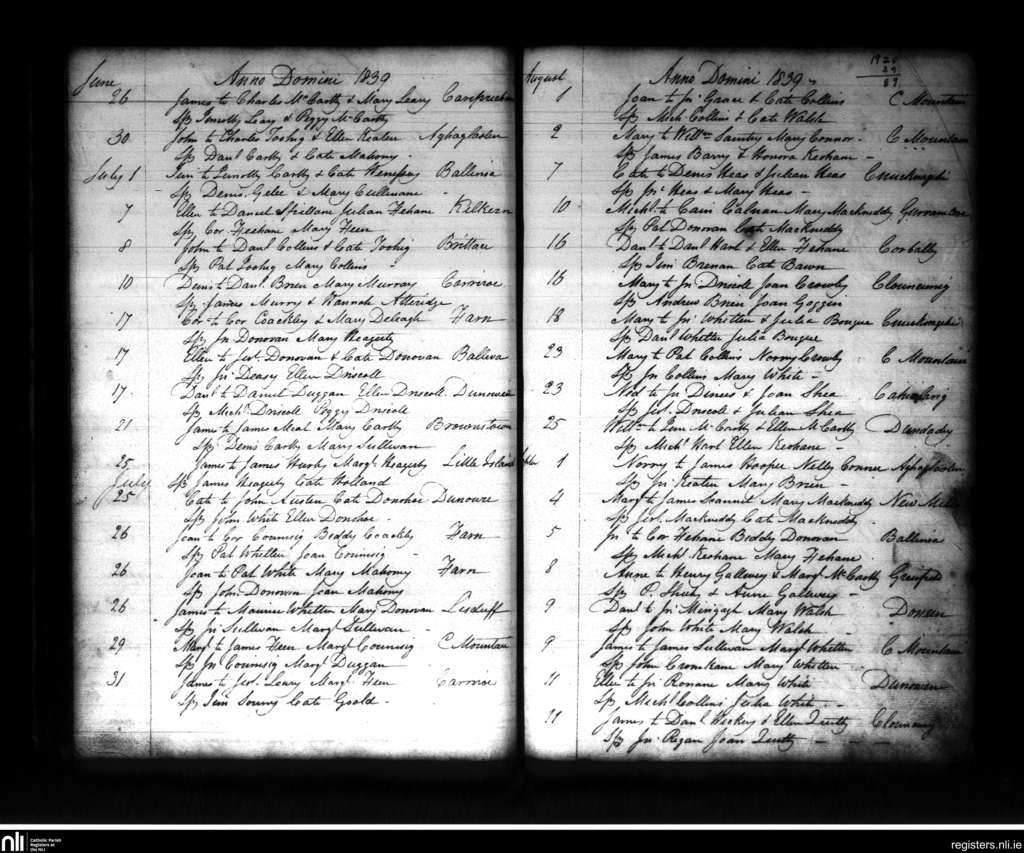 June Anno Domini 1839
26 James to Charles McCarthy & Mary Leary
Sp Timothy Leary & Peggy McCarthy
30 John to Charles Toohig & Ellen Keaten Aghaglasten
Sp Danl Carthy & Cate Mahony
July 1 to Timothy Carthy & Cate Hennessy Ballinia
Sp Denis Gelee & Mary Cullinane
7 Ellen to Daniel Spillane Julian Fehane Kilkern
Sp Cor Feehane Mary Heen
8 John to Danl Collins & Cate Toohig Brittace
Sp Pat Toohig Mary Collins
10 Denis to Danl Brien Mary Murray Carriroe
Sp James Murry & Hannah Atteridge
17 Cor to Cor Coackley & Mary Farn
Sp Jn Donovan Mary Heagerty
17 Ellen to Jer. Donovan & Cate Donovan Balliva
Sp Jn Deasy Ellen Driscoll
17 Danl to Daniel Duggan Ellen Driscoll Dunowen
Sp Michl Driscole Peggy Driscole
21 James to James Neal Mary Carthy Brownstown
Sp Denis Carthy Mary Sullivan
25 James to James Hurly Margt Heagerty Little Island
July Sp James Heagerty Cate Holland
25 Cate to John Austen Cate Donohoe Dunowre
Sp John White Ellen Donohoe
26 Joan to Cor Counisig Biddy Coackley Farn
Sp Pat Whelten Joan Counisig
26 Joan to Pat White Mary Mahony Farn
Sp John Donovan Joan Mahony
26 James to Maurice Whelten Mary Donovan Lisduff
Sp Jn Sullivan Margt Sullivan
29 Margt to James Heen Margt Counisig C Mountain
Sp Jn Counisig Margt Duggan
31 James to Jer. Leary Margt Heen Carriroe
Sp Cate Goold
August Anno Domini 1839
1 Joan to Jn Grace & Cate Collins C Mountain
Sp Mich Collins & Cate Walsh
2 Mary to Willm Mary Connor C Mountain
Sp James Barry & Honora Keohane
7 Cate to Denis Heas & Julian Heas
Sp Jn Heas & Mary Heas
10 Michl to Cain Calnan Mary Mackneddy
Sp Pat Donovan Cate Mackneddy
16 Danl to Danl Hart & Ellen Fehane Corbally
Sp Jim Brenan Cate Bawn
16 Mary to Jn Driscole Joan Crowly
Sp Andrew Brien Joan Goggin
18 Mary to Jn Whelten & Julia Bougue
Sp Danl Whelten Julia Bougue
23 Mary to Pat Collins Norry Crowly C Mountain
Sp Jn Collins Mary White
23 Ned to Jn & Joan Shea
Sp Jer. Driscole & Julian Shea
25 Willm to McCarthy & Ellen McCarthy Dundady
Sp Michl Hart Ellen Keohane
1 Norry to James Hooper Nelly Connor Aghaglasten
Sp Jn Keaten Mary Brien
4 Margt to James Scannil Mary Mackneddy New Mill
Sp Jer. Mackneddy Cate Mackneddy
5 Jn to Cor Fehane Biddy Donovan Ballinia
Sp Michl Keohane Mary Fehane
8 Anne to Henry Gallwey & Margt McCarthy Greenfield
Sp P. Sheehy & Anne Gallwey
9 Danl to Jn Mary Walsh Doneen
Sp John White Mary Walsh
9 James to James Sullivan Mary Whelten C Mountain
Sp John Mary Whelten
11 Ellen to Jn Ronane Mary White Dunowen
Sp Michl Collins Julia White
11 James to Danl Hickey & Ellen
Sp Jn Regan Joan
nli
Catholic Parish
Registers at
the NLI
registers.nli.ie